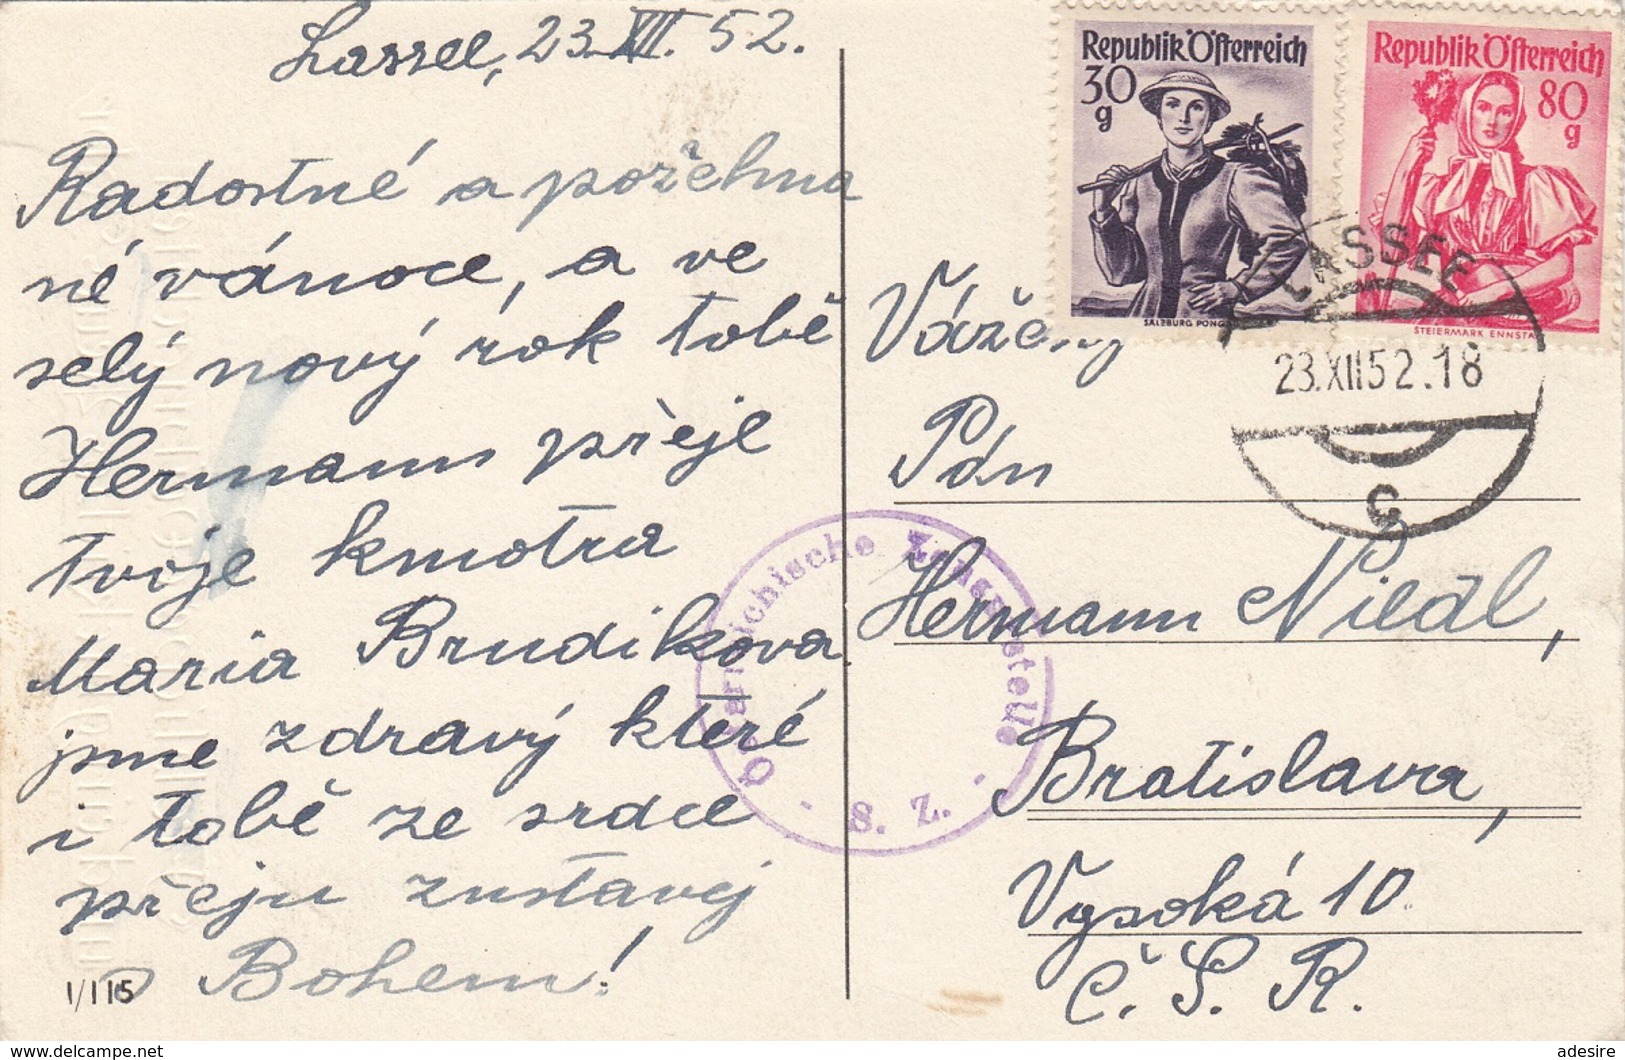 Lassee, 23.XII. 52.
Radostné a požehna
né vánoce, a ve
selý nový rok tobě
Hermann přeje
tvoje kmotra
Maria Brudikova
jsme zdravý které
i tobě ze srdce
přeju zustavej
s Bohem!
1/115
Republik Österreich
30
g
SALZBURG PONG
Republik Österreich
80
g
STEIERMARK ENNSTAL
LASSEE
23.XII52.18
c
Österreichische Zensurstelle
S. Z.
Vážený
Pán
Hermann Niedl,
Bratislava,
Vysoká 10
Č. S. R.
www.delcampe.net
adesire